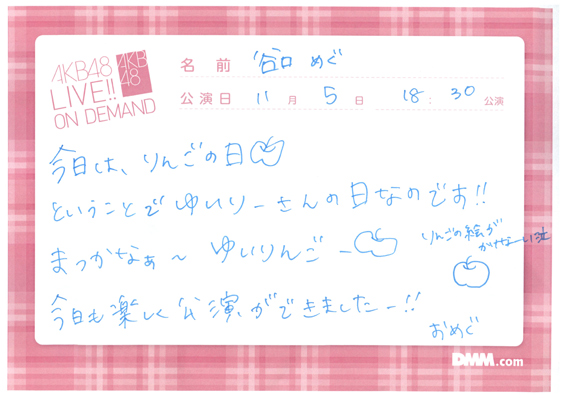 AKB48
LIVE!!
ON DEMAND
AKB
48
名前 谷口 めぐ
公演日 11月 5日 18:30公演
今日は、りんごの日
ということで ゆいりーさんの日なのです!!
まっかなぁ〜 ゆいりんごー
りんごの絵が
かけなーい泣
今日も楽しく公演ができましたー!!
おめぐ
DMM.com